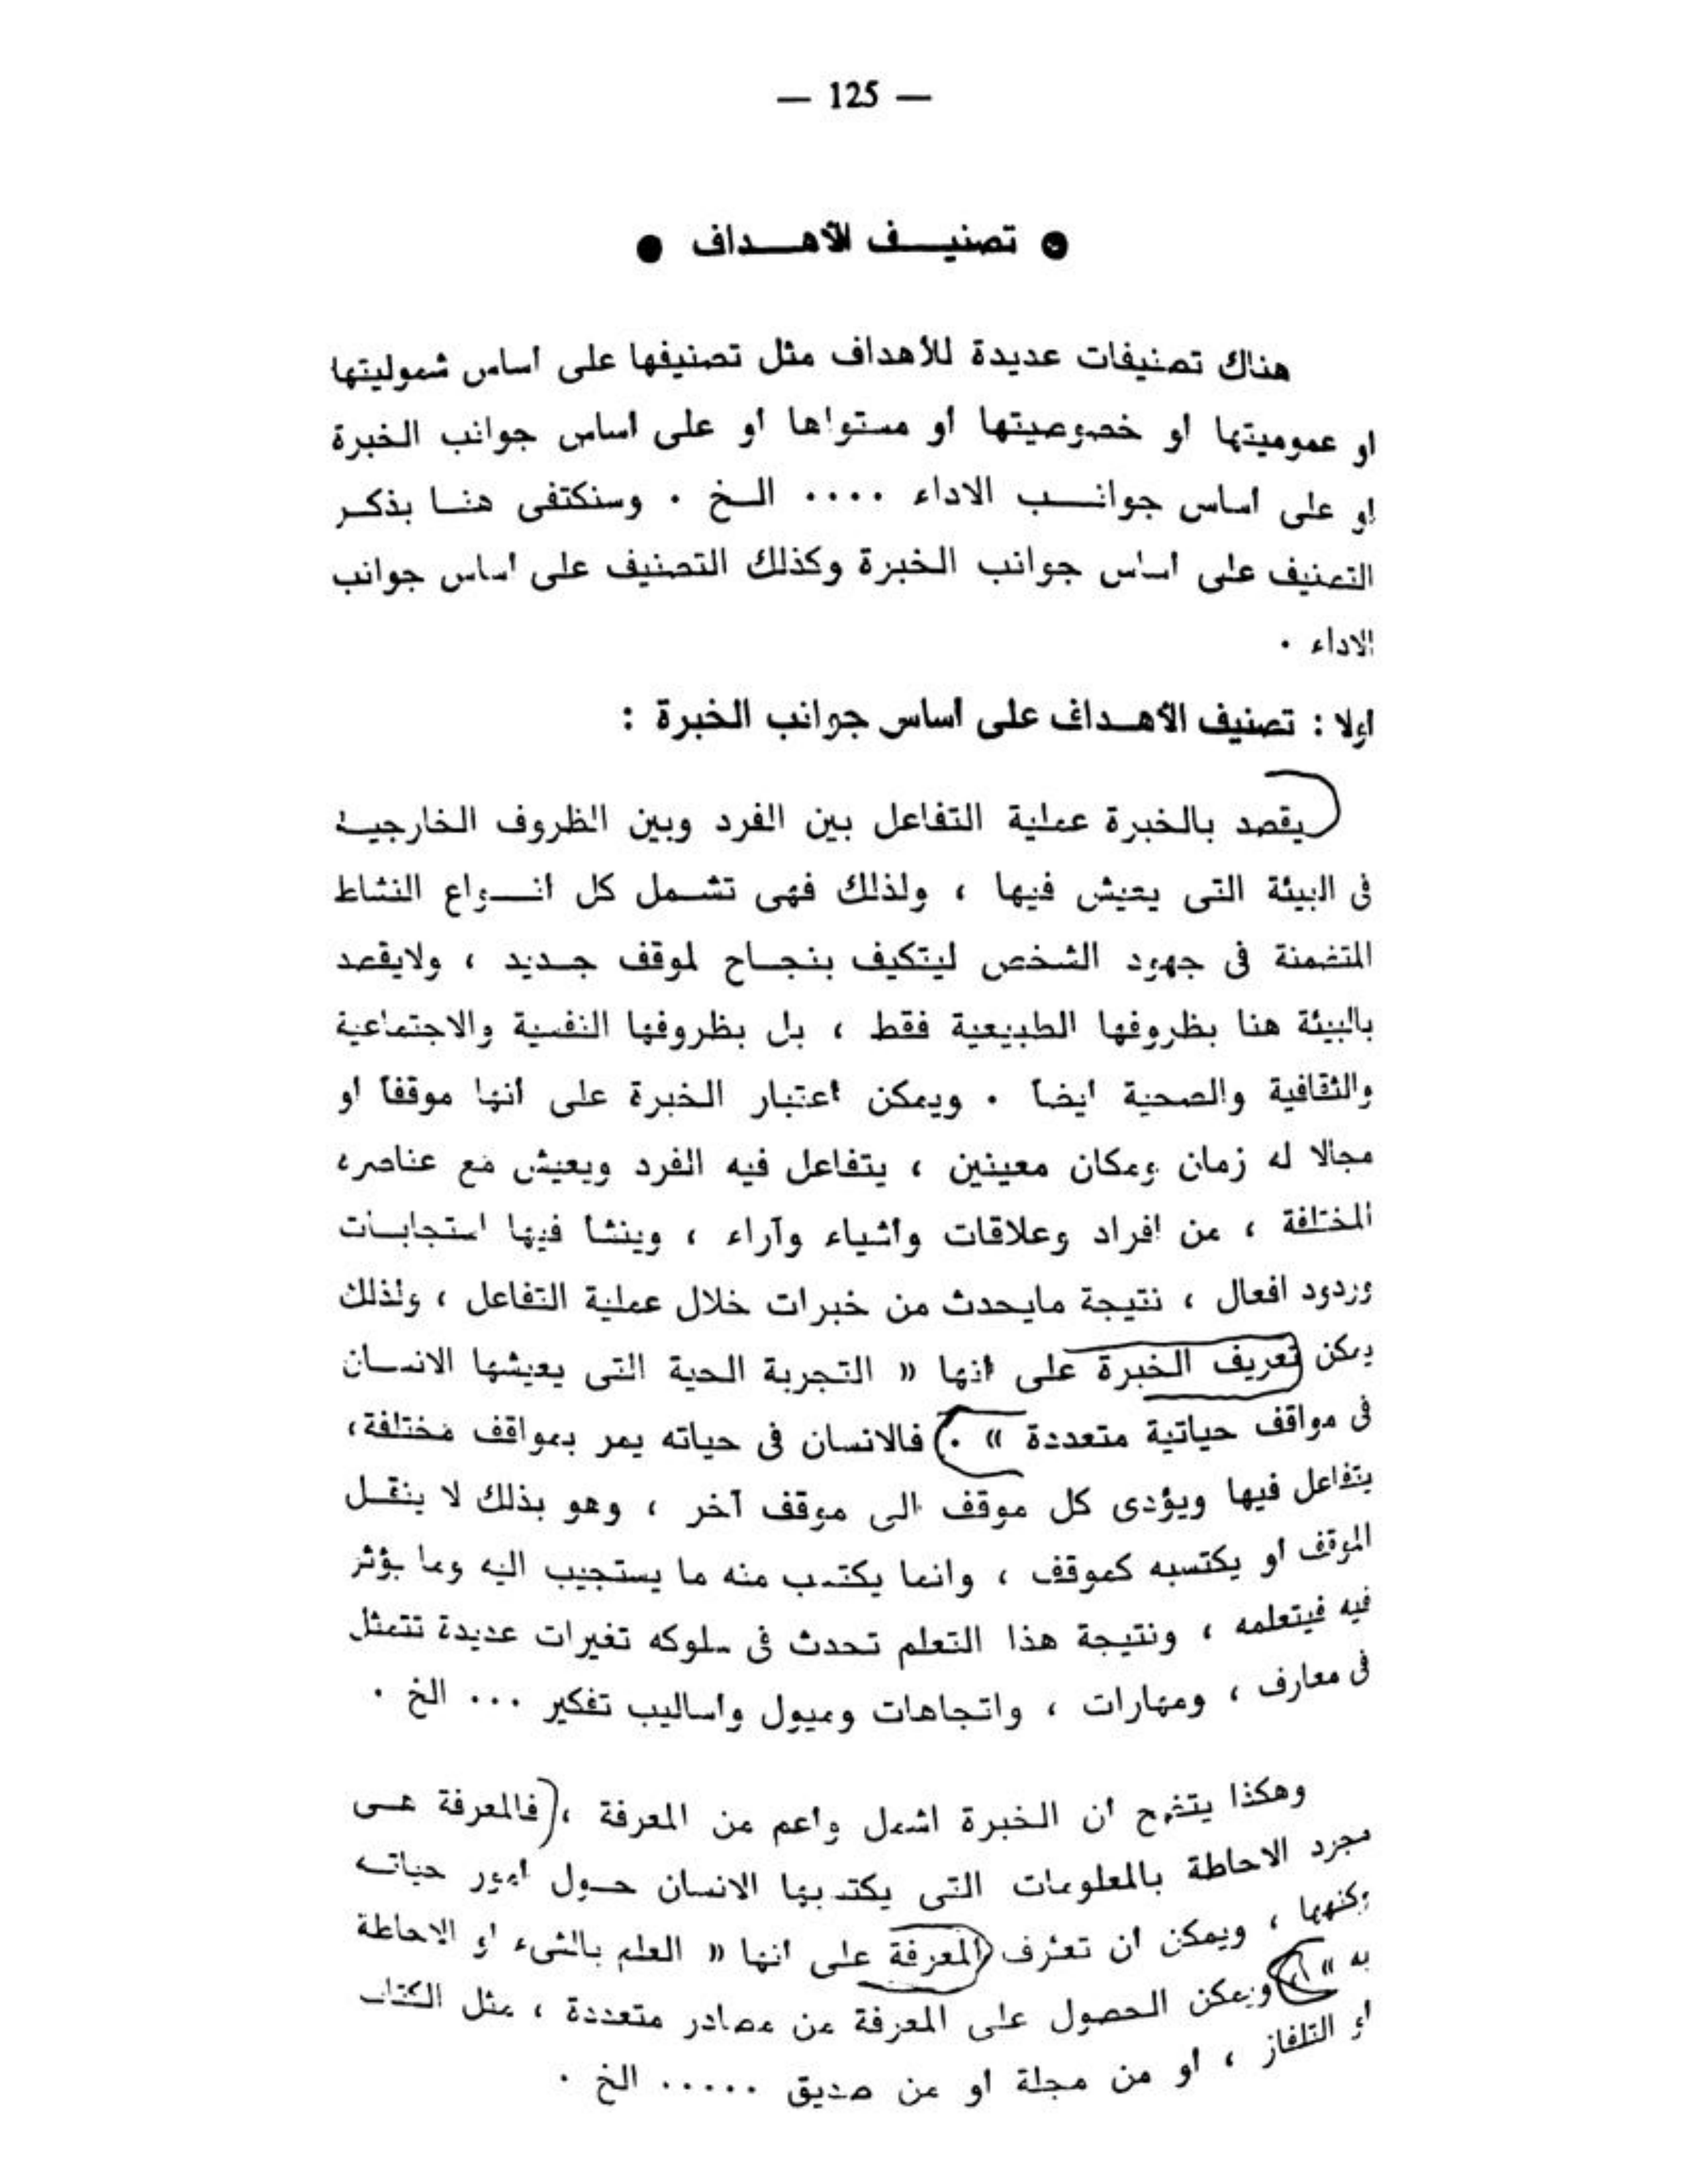 — 125 —
● تصنيف الأهداف ●
هناك تصنيفات عديدة للأهداف مثل تصنيفها على أساس شموليتها
او عموميتها او خصوصيتها أو مستواها أو على أساس جوانب الخبرة
او على اساس جوانب الاداء .... الخ . وسنكتفى هنا بذكر
التصنيف على أساس جوانب الخبرة وكذلك التصنيف على اساس جوانب
الاداء .
أولا : تصنيف الأهداف على أساس جوانب الخبرة :
يقصد بالخبرة عملية التفاعل بين الفرد وبين الظروف الخارجية
فى البيئة التى يعيش فيها ، ولذلك فهى تشمل كل أنواع النشاط
المتضمنة فى جهود الشخص ليتكيف بنجاح لموقف جديد ، ولايقصد
بالبيئة هنا بظروفها الطبيعية فقط ، بل بظروفها النفسية والاجتماعية
والثقافية والصحية ايضا . ويمكن اعتبار الخبرة على أنها موقفا او
مجالا له زمان ومكان معينين ، يتفاعل فيه الفرد ويعيش مع عناصره
المختلفة ، من افراد وعلاقات وأشياء وآراء ، وينشأ فيها استجابات
وردود افعال ، نتيجة مايحدث من خبرات خلال عملية التفاعل ، ولذلك
يمكن تعريف الخبرة على انها « التجربة الحية التى يعيشها الانسان
فى مواقف حياتية متعددة » . فالانسان فى حياته يمر بمواقف مختلفة،
يتفاعل فيها ويؤدى كل موقف الى موقف آخر ، وهو بذلك لا ينقل
الموقف أو يكتسبه كموقف ، وانما يكتسب منه ما يستجيب اليه وما يؤثر
فيه فيتعلمه ، ونتيجة هذا التعلم تحدث فى سلوكه تغيرات عديدة تتمثل
فى معارف ، ومهارات ، واتجاهات وميول وأساليب تفكير ... الخ .
وهكذا يتضح أن الخبرة اشمل وأعم من المعرفة ، فالمعرفة هى
مجرد الاحاطة بالمعلومات التى يكتسبها الانسان حول أمور حياته
وكنهها ، ويمكن ان تعرف المعرفة على انها « العلم بالشىء او الاحاطة
به » ، ويمكن الحصول على المعرفة من مصادر متعددة ، مثل الكتاب
او التلفاز ، أو من مجلة او من صديق ..... الخ .